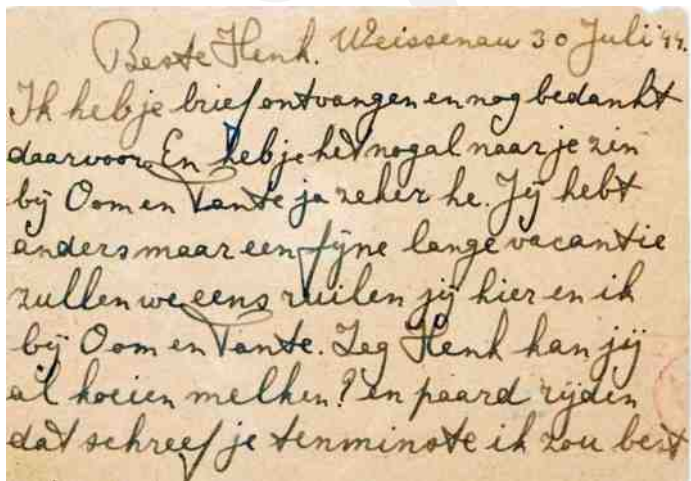 Beste Henk. Weissenau 30 Juli '44.
Ik heb je brief ontvangen en nog bedankt
daarvoor. En heb je het nogal naar je zin
bij Oom en Tante ja zeker he. Jij hebt
anders maar een fijne lange vacantie
zullen we eens ruilen jij hier en ik
bij Oom en Tante. Zeg Henk kan jij
al koeien melken? en paard rijden
dat schreef je tenminste ik zou best